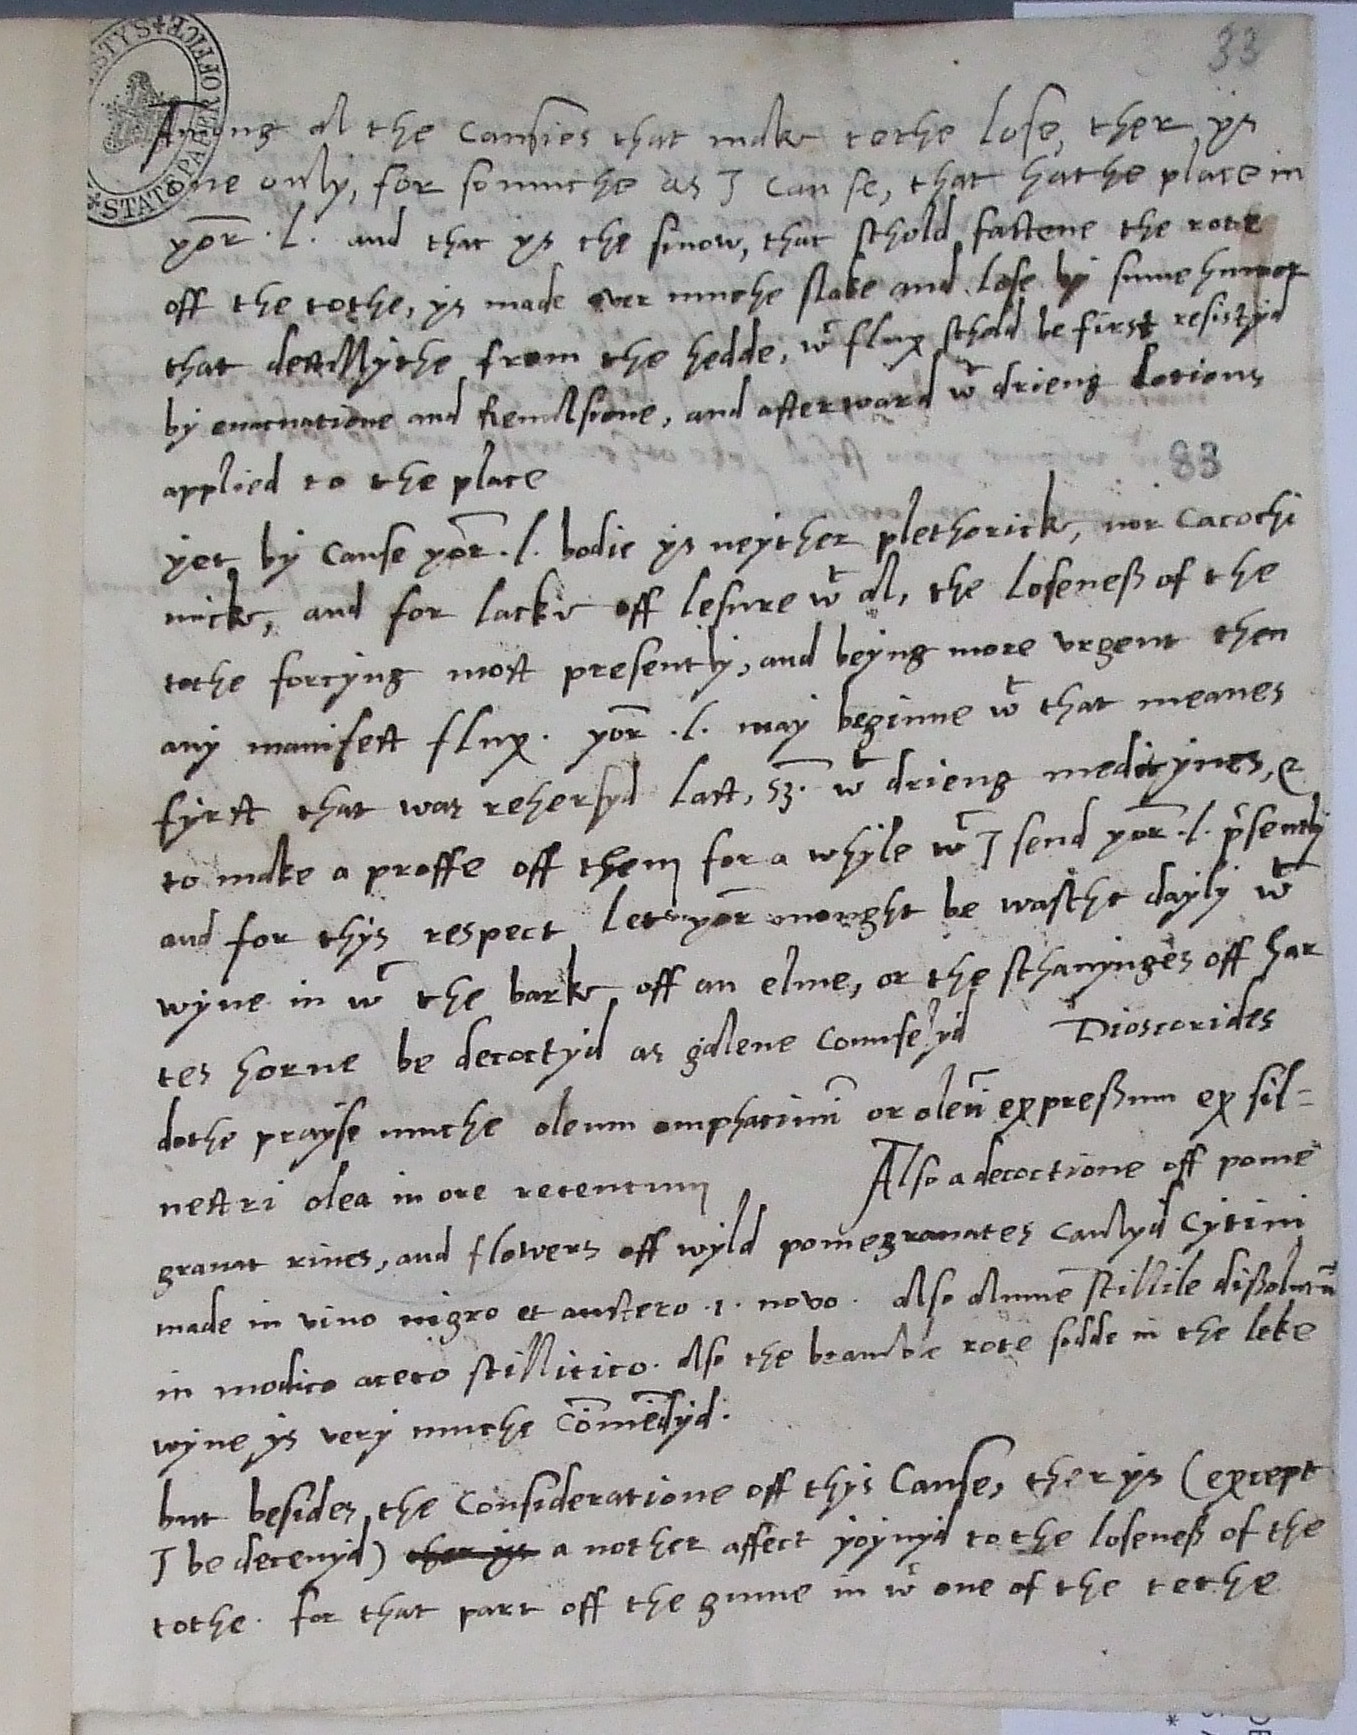 33
STATE PAPER OFFICE
Among al the causies that make tethe lose, ther ys
one only, for somuche as I can se, that hathe place in
yor .l. and that ys the sinow, that schold fastene the rote
off the tothe, ys made over muche slake and lose by sume humor
that destillythe from the hedde, wch flux schold be first resistyd
by evacuatione and Revulsione, and afterward wt drieng lotions
applied to the place
83
yet by cause yor .l. bodie ys neyther plethorick, nor cacochi
mick, and for lacke off lesure wt al, the loseneß of the
tothe forcyng most presently, and beyng more urgent then
any manifest flux. yor .l. may beginne wt that meanes
fyrst that was rehersyd last, sz. wt drieng medicynes, &
to make a proffe off them for a whyle wch I send yor .l. psently
and for thys respect let yor mowght be wascht dayly wt
wyne in wch the barke off an elme, or the schavynges off har
tes horne be decoctyd as galene counselyd Dioscorides
dothe prayse muche oleum omphacinu or oleu expreßum ex sil=
vestri olea in ore retentum Also a decoctione off pome
granat rines, and flowers off wyld pomegranates caulyd Cytini
made in vino nigro et austero .i. novo. also alume scissile dißolutu
in modico aceto scillitico. also the bramble rote sodde in the leke
wyne ys very muche comedyd.
but besides the consideratione off thys cause, ther ys (except
I be deceuyd) ther ys a nother affect yoynyd to the loseneß of the
tothe. for that part off the gume in wch one of the tethe